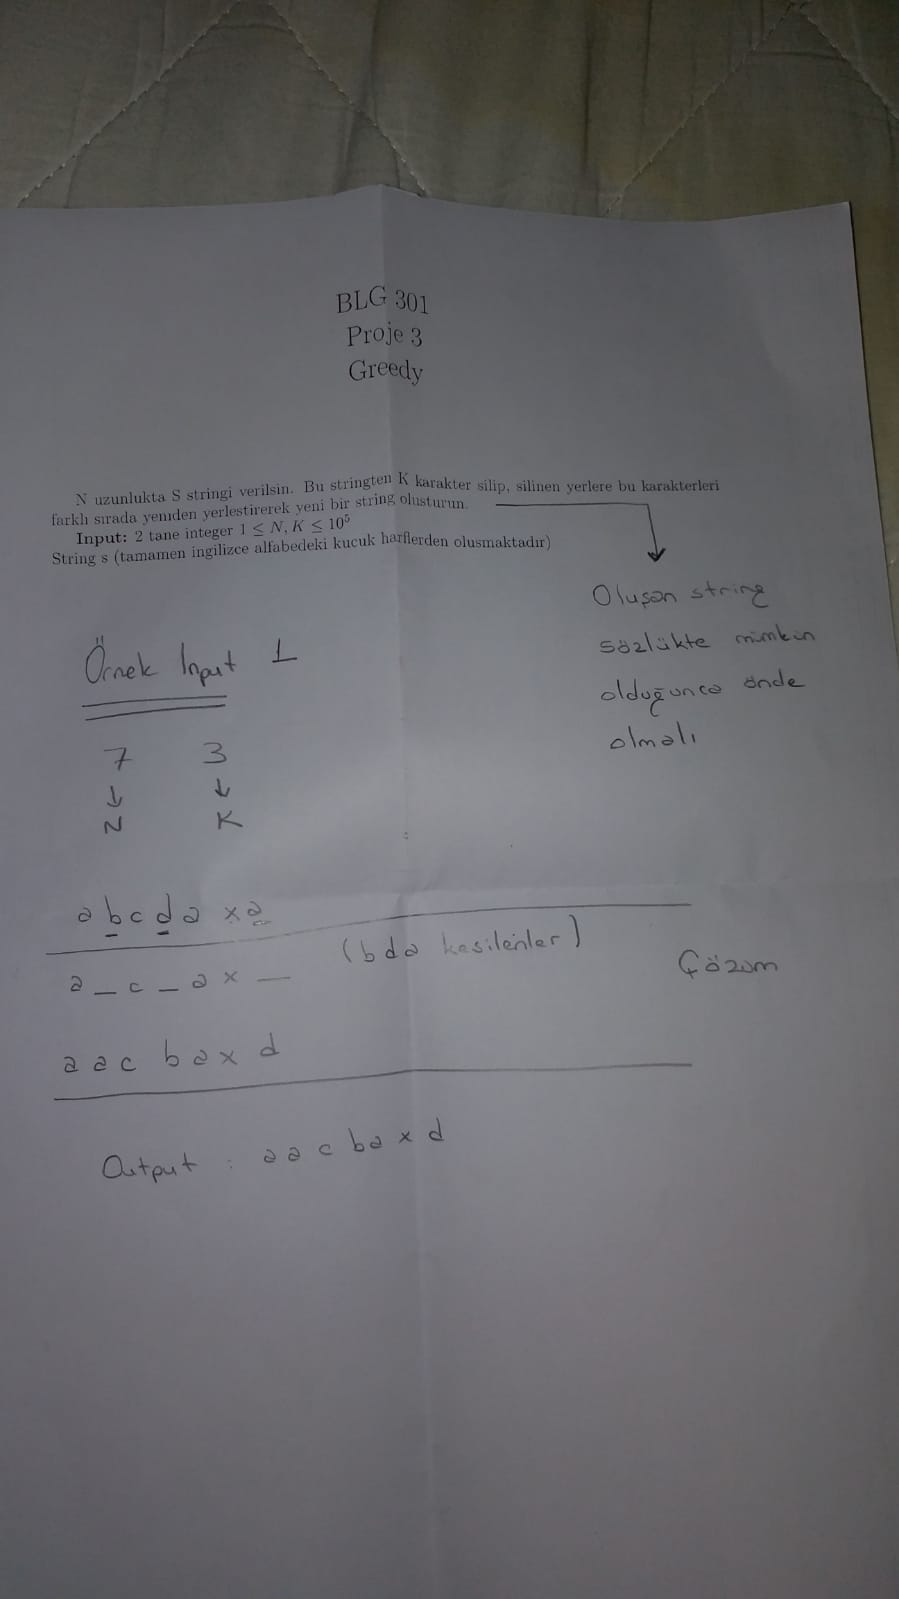 BLG 301
Proje 3
Greedy
N uzunlukta S stringi verilsin. Bu stringten K karakter silip, silinen yerlere bu karakterleri
farklı sırada yeniden yerlestirerek yeni bir string olusturun.
Input: 2 tane integer 1 ≤ N, K ≤ 10⁵
String s (tamamen ingilizce alfabedeki kucuk harflerden olusmaktadır)
Oluşan string
sözlükte mümkün
olduğunca önde
olmalı
Örnek Input 1
7 3
↓ ↓
N K
a b c d a x a
a _ c _ a x _ (b d a kesilenler)
Çözüm
a a c b a x d
Output : a a c b a x d